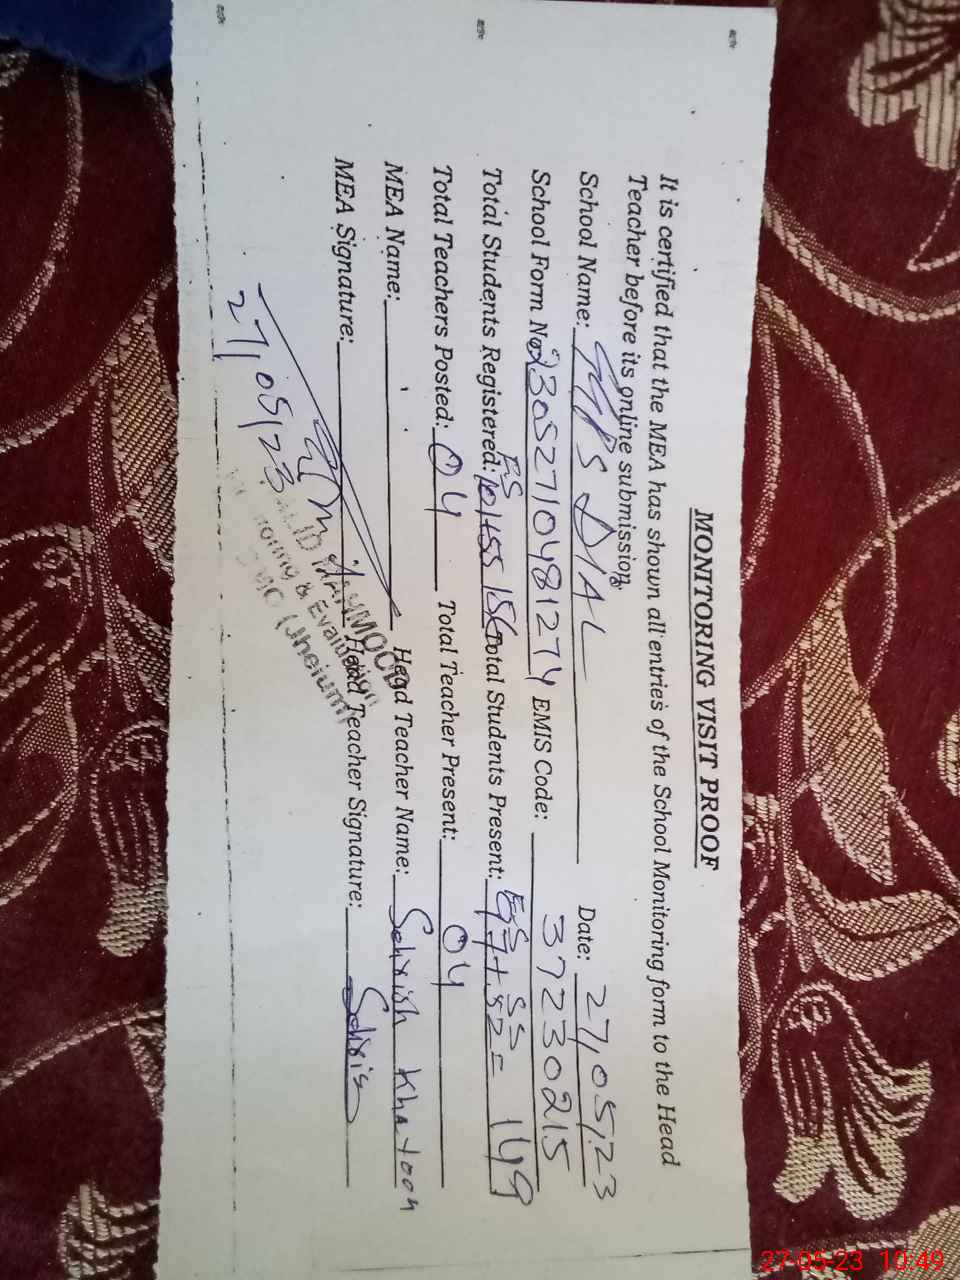 MONITORING VISIT PROOF
It is certified that the MEA has shown all entries of the School Monitoring form to the Head
Teacher before its online submission.
School Name: DIAL Date: 27,05,23
School Form No: 23052710481274 EMIS Code: 37230215
Total Students Registered: ES 101+55 156 Total Students Present: ES SS 97+52= 149
Total Teachers Posted: 04 Total Teacher Present: 04
MEA Name: Head Teacher Name: Sehrish Khatoon
MEA Signature: Head Teacher Signature: Sehris
27,05,23
MAHMOOD
& Evaluation
(Jhelum)
27-05-23 10:49